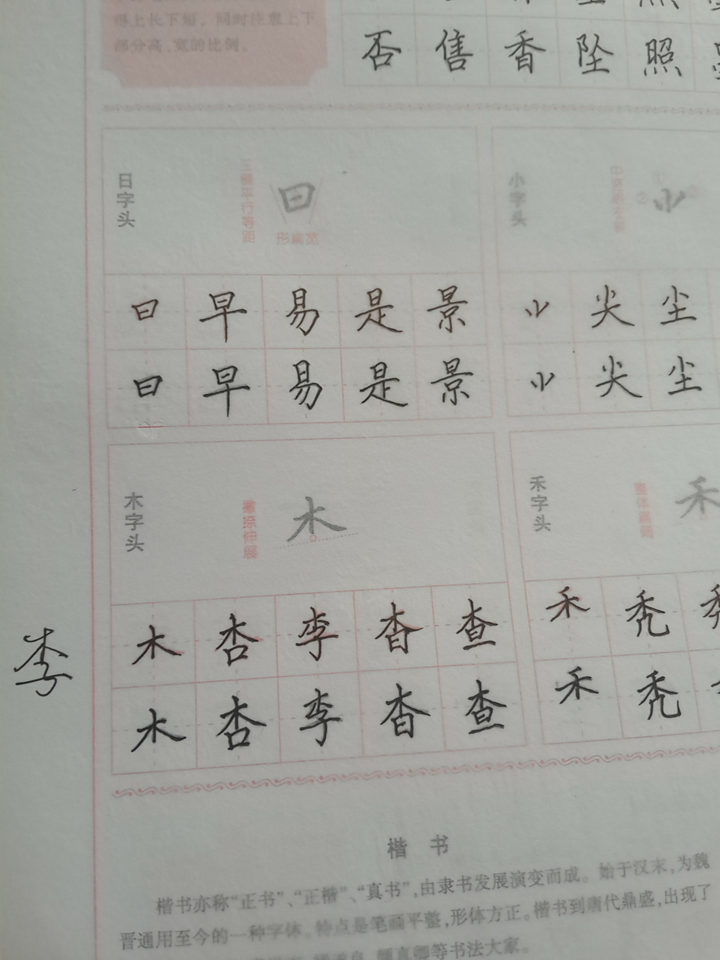 得上长下短，同时注意上下
部分高、宽的比例。
否 售 香 坠 照
日字头
三横平行等距
日
形扁宽
日 早 易 是 景
日 早 易 是 景
小字头
小
① ② ③
小 尖 尘
小 尖 尘
木字头
撇捺伸展
木
木 杏 李 杳 查
木 杏 李 杳 查
李
禾字头
禾
禾 秃
禾 秃
楷 书
楷书亦称“正书”、“正楷”、“真书”，由隶书发展演变而成。始于汉末，为魏
晋通用至今的一种字体。特点是笔画平整，形体方正。楷书到唐代鼎盛，出现了
颜真卿等书法大家。